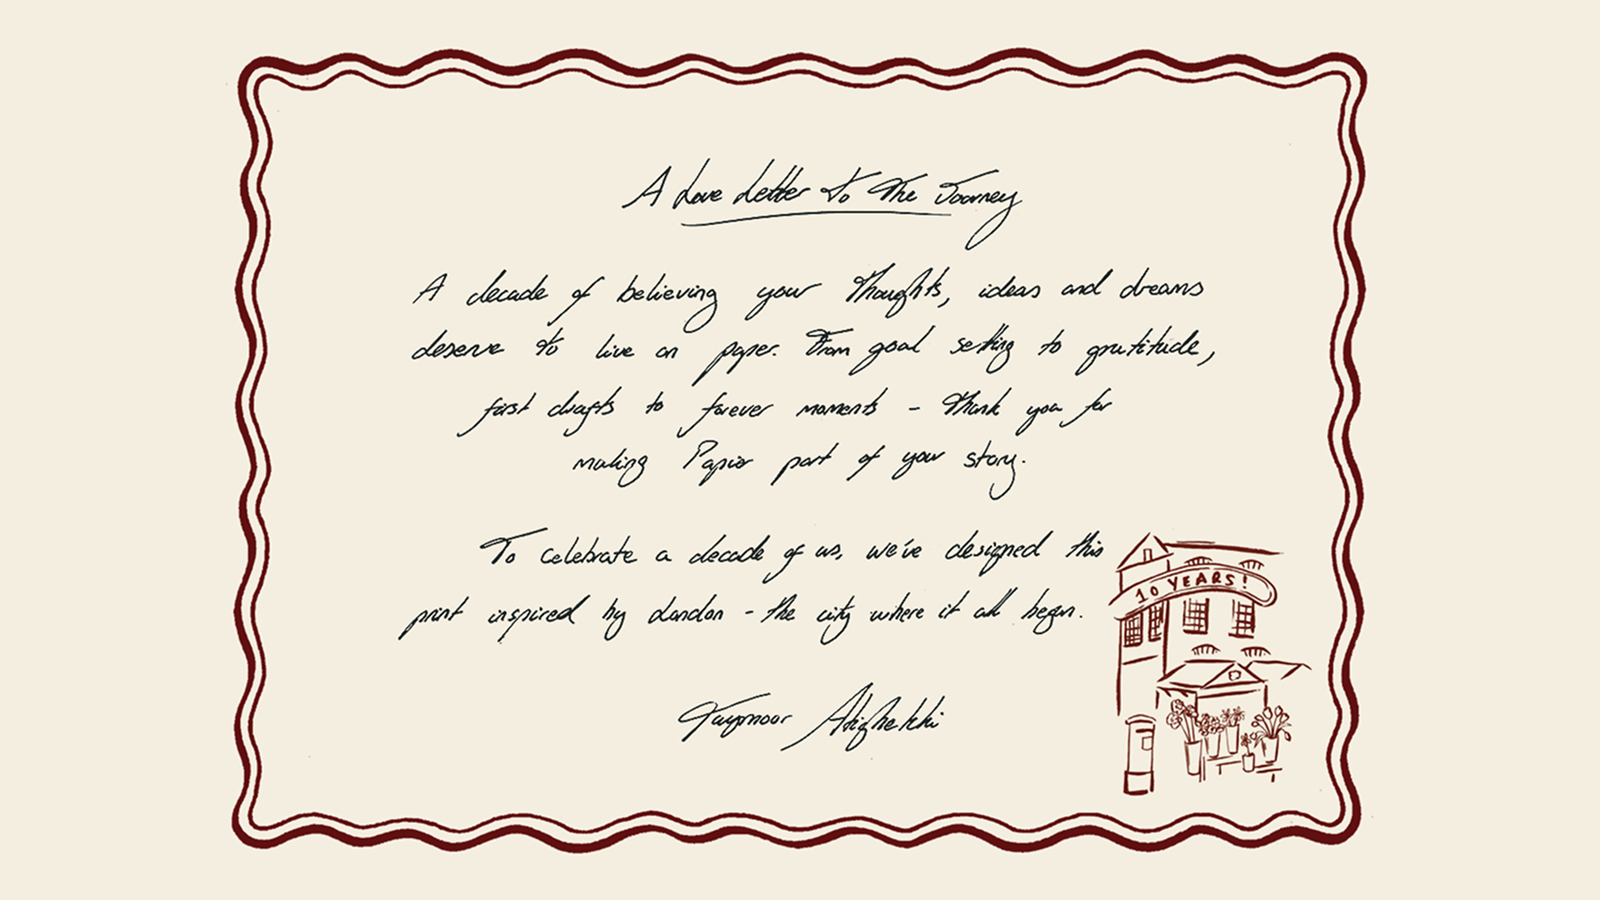 A Love Letter To The Journey
A decade of believing your thoughts, ideas and dreams
deserve to live on paper. From goal setting to gratitude,
first drafts to forever moments - thank you for
making Papier part of your story.
To celebrate a decade of us, we've designed this
print inspired by London - the city where it all began.
10 YEARS!
Taymoor Atighetchi